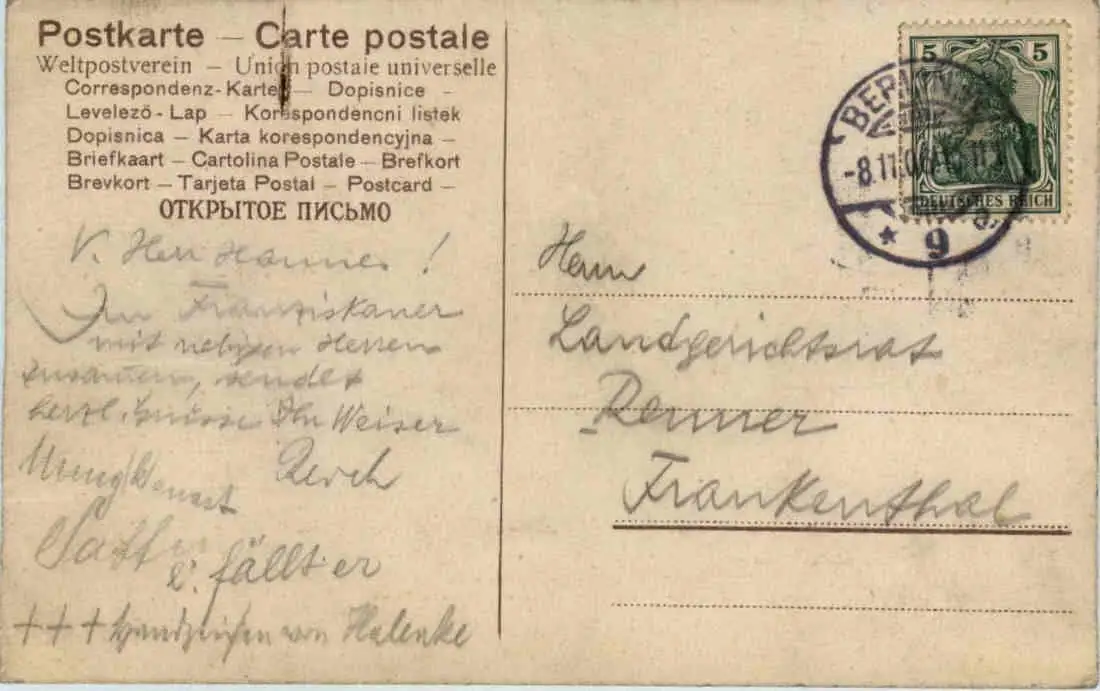 Postkarte – Carte postale
Weltpostverein – Union postale universelle
Correspondenz-Karte – Dopisnice –
Levelező-Lap – Korespondencni listek
Dopisnica – Karta korespondencyjna –
Briefkaart – Cartolina Postale – Brefkort
Brevkort – Tarjeta Postal – Postcard –
ОТКРЫТОЕ ПИСЬМО
5 5
DEUTSCHES REICH
BERLIN
-8.11.06
* 9 a.
V. Herr Hannes!
Im Franziskaner
mit Herren
zusammen, sendet
herzl. Grüsse Ihr Weiser
fällt er
+++ Handzeichen von Halenke
Herrn
Landgerichtsrat
Renner
Frankenthal